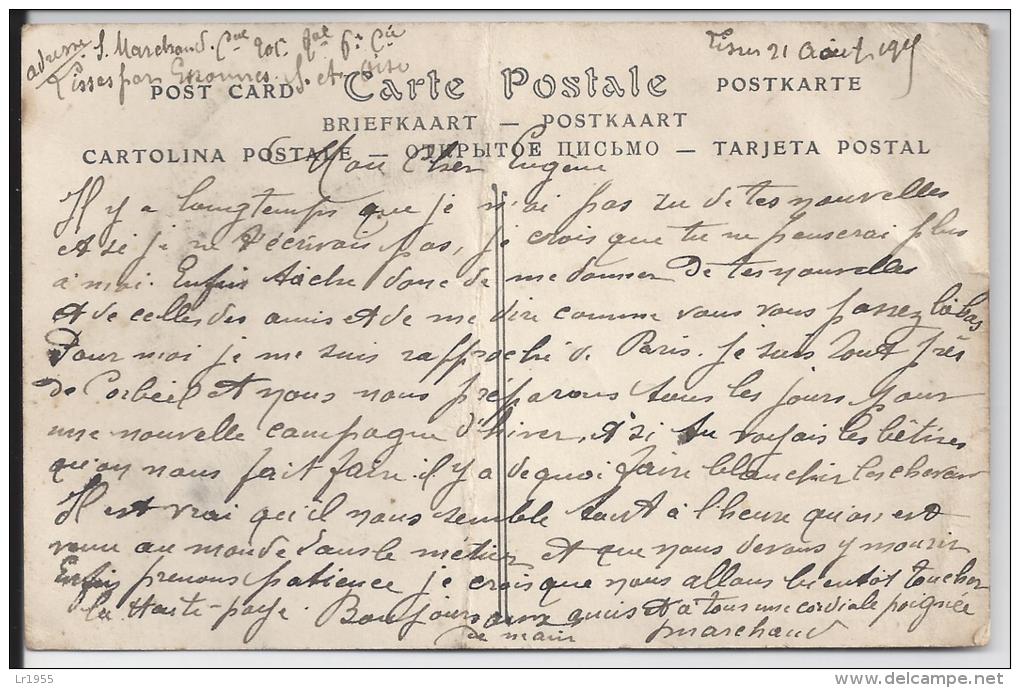 adresse S. Marchand. Cal 205e 6e Cie
Lisses par Essonnes. S. et Oise
Lisses 21 août 1915
POST CARD Carte Postale POSTKARTE
BRIEFKAART — POSTKAART
CARTOLINA POSTALE — ОТКРЫТОЕ ПИСЬМО — TARJETA POSTAL
Mon Cher Eugene
Il y a longtemps que je n'ai pas eu de tes nouvelles
et si je ne t'écrivais pas, je crois que tu ne penserai plus
à moi. Enfin tache donc de me donner de tes nouvelles
et de celles des amis et de me dire comme vous vous passez là bas
Pour moi je me suis rapproché de Paris. je suis tout près
de Corbeil et nous nous préparons tous les jours pour
une nouvelle campagne d'hiver, et si tu voyais les bêtises
qu'on nous fait faire il y a de quoi faire blanchir les cheveux
Il est vrai qu'il nous semble tout à l'heure qu'on est
venu au monde dans le métier et que nous devons y mourir
Enfin prenons patience je crois que nous allons bientot toucher
la Haute-paye. Bonjour aux amis et à tous une cordiale poignée
de main Marchand
Lr1955
delcampe.net